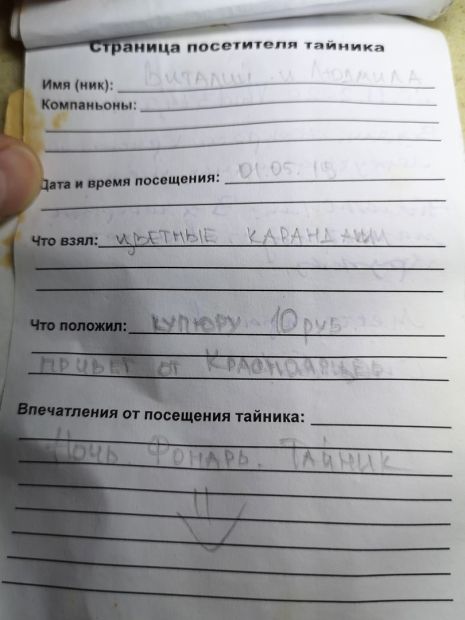 Страница посетителя тайника
Имя (ник): Виталий и Людмила
Компаньоны:
Дата и время посещения: 01.05.19
Что взял: ЦВЕТНЫЕ КАРАНДАШИ
Что положил: КУПЮРУ 10 руб
ПРИВЕТ ОТ КРАСНОДАРЦЕВ.
Впечатления от посещения тайника:
Ночь. Фонарь. Тайник